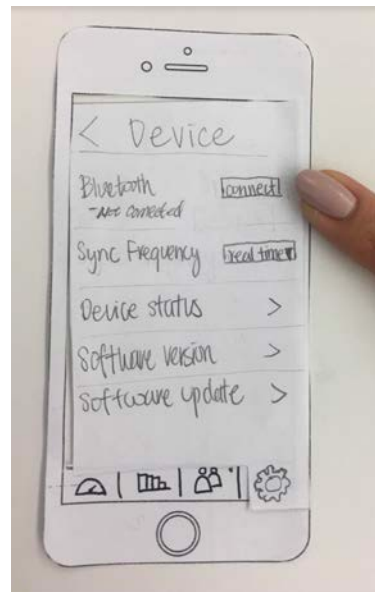 < Device
Bluetooth connect
-Not connected
Sync Frequency real time▾
Device status >
Software version >
Software update >